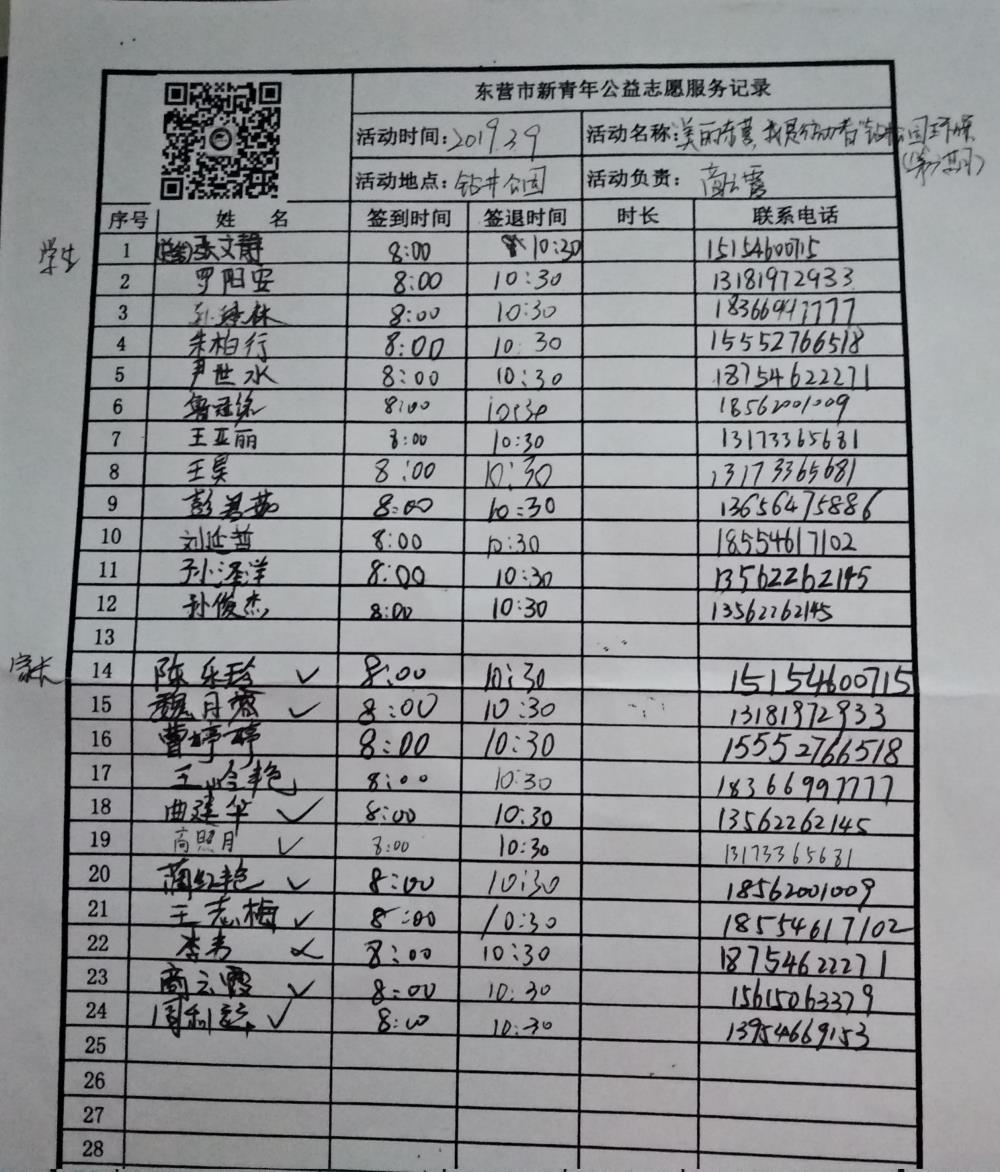 东营市新青年公益志愿服务记录
活动时间：2019.3.9 活动名称：美丽东营，我是行动者"钻井公园环保
活动地点：钻井公园 活动负责：商云霞
序号 姓名 签到时间 签退时间 时长 联系电话
学生 1 张文静 8:00 10:30 15154600715
2 罗阳安 8:00 10:30 13181972933
3 8:00 10:30 18366997777
4 朱柏行 8:00 10:30 15552766518
5 尹世水 8:00 10:30 18754622271
6 8:00 10:30 18562001009
7 王亚丽 8:00 10:30 13173365681
8 王昊 8:00 10:30 13173365681
9 彭茗茹 8:00 10:30 13656475886
10 刘延哲 8:00 10:30 18554617102
11 孙泽洋 8:00 10:30 13562262145
12 孙俊杰 8:00 10:30 13562262145
13
家长 14 陈乐玲 ✓ 8:00 10:30 15154600715
15 魏月霞 ✓ 8:00 10:30 13181972933
16 曹婷婷 8:00 10:30 15552766518
17 8:00 10:30 18366997777
18 曲建华 ✓ 8:00 10:30 13562262145
19 高照月 ✓ 8:00 10:30 13173365681
20 蔺红艳 ✓ 8:00 10:30 18562001009
21 王志梅 ✓ 8:00 10:30 18554617102
22 李韦 8:00 10:30 18754622271
23 商云霞 ✓ 8:00 10:30 15615063379
24 ✓ 8:00 10:30 13954669153
25
26
27
28